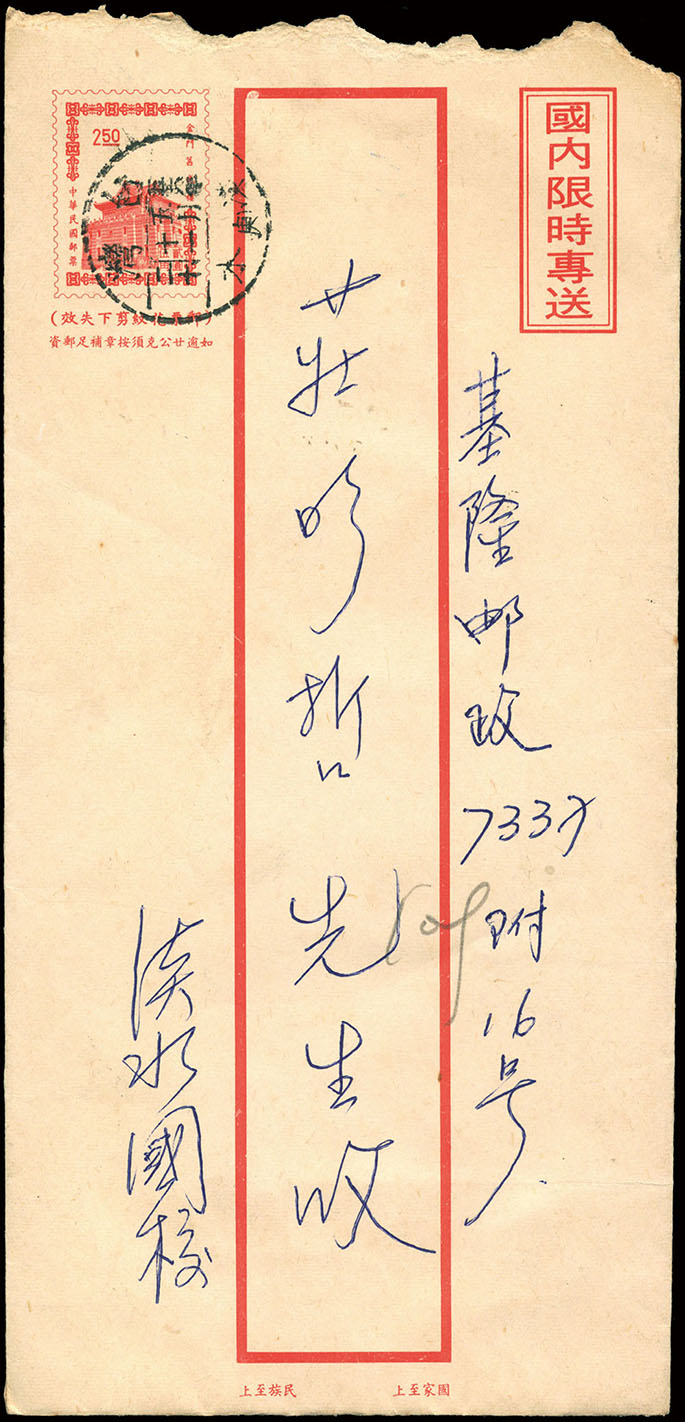 國內限時專送
基隆邮政7337附16号
莊明哲先生收
淡水國校
2.50
金門莒
中華民國郵票
台灣
淡水
(郵票花紋剪下失效)
如逾廿公克須按章補足郵資
國家至上
民族至上